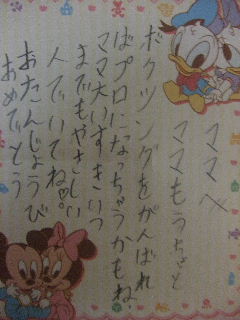 ママへ
ママもうちょっと
ボクシングをがんばれ
ばプロになっちゃうかもね、
ママ大いすきいつ
までもやさしい
人でいてね♡。
おたんじょうび
おめでとう